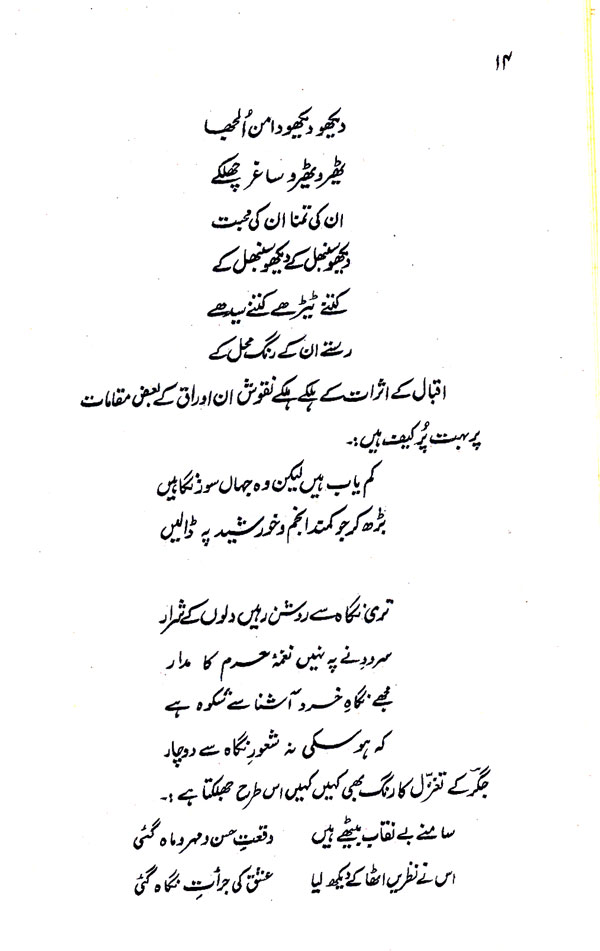 ۱۴
دیکھو دیکھو دامن اُلجھا
ٹھیرو ٹھیرو ساغر چھلکے
ان کی تمنا ان کی محبت
دیکھو سنبھل کے دیکھو سنبھل کے
کتنے ٹیڑھے کتنے سیدھے
رستے ان کے رنگ محل کے
اقبال کے اثرات کے ہلکے ہلکے نقوش ان اوراق کے بعض مقامات
پر بہت پُر کیف ہیں :۔
کم یاب ہیں لیکن وہ جہاں سوز نگاہیں
بڑھ کر جو کمند انجم و خورشید پہ ڈالیں
تری نگاہ سے روشن رہیں دلوں کے شرار
سرودِ نے پہ نہیں نغمۂ حرم کا مدار
مجھے نگاہِ خرد آشنا سے شکوہ ہے
کہ ہو سکی نہ شعورِ نگاہ سے دوچار
جگرؔ کے تغزّل کا رنگ بھی کہیں کہیں اس طرح جھلکتا ہے :۔
سامنے بے نقاب بیٹھے ہیں وقعتِ حسن مہر و ماہ گئی
اس نے نظریں اٹھا کے دیکھ لیا عشق کی جرأتِ نگاہ گئی